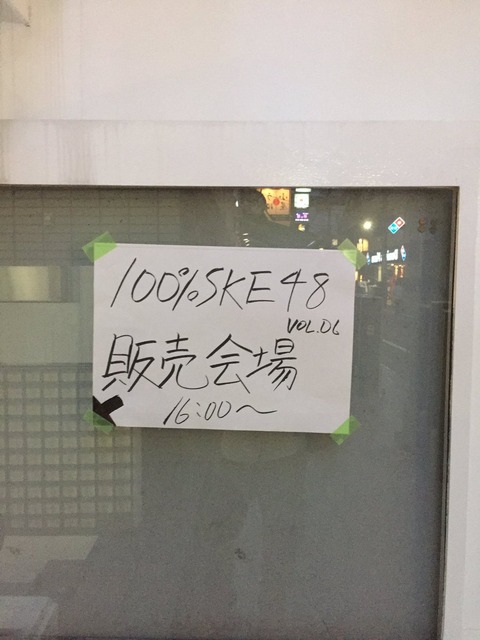 100%SKE48
VOL.06
販売会場
16:00〜